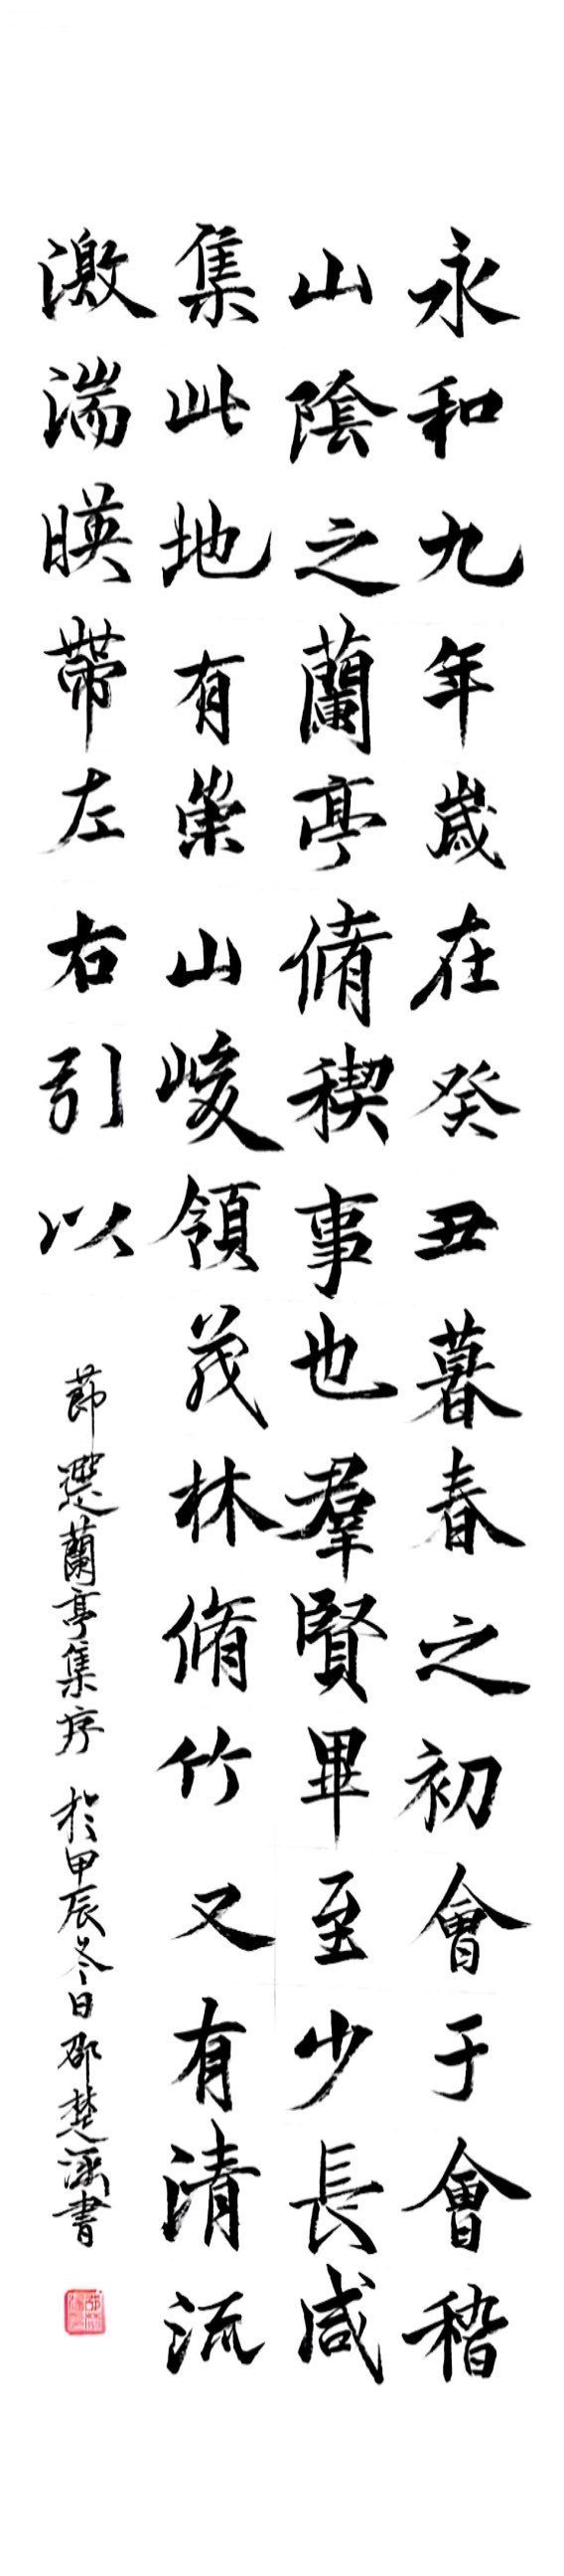 永和九年歲在癸丑暮春之初會于會稽
山陰之蘭亭脩稧事也羣賢畢至少長咸
集此地有崇山峻領茂林脩竹又有清流
激湍暎帶左右引以
節選蘭亭集序 於甲辰冬日邵楚涵書